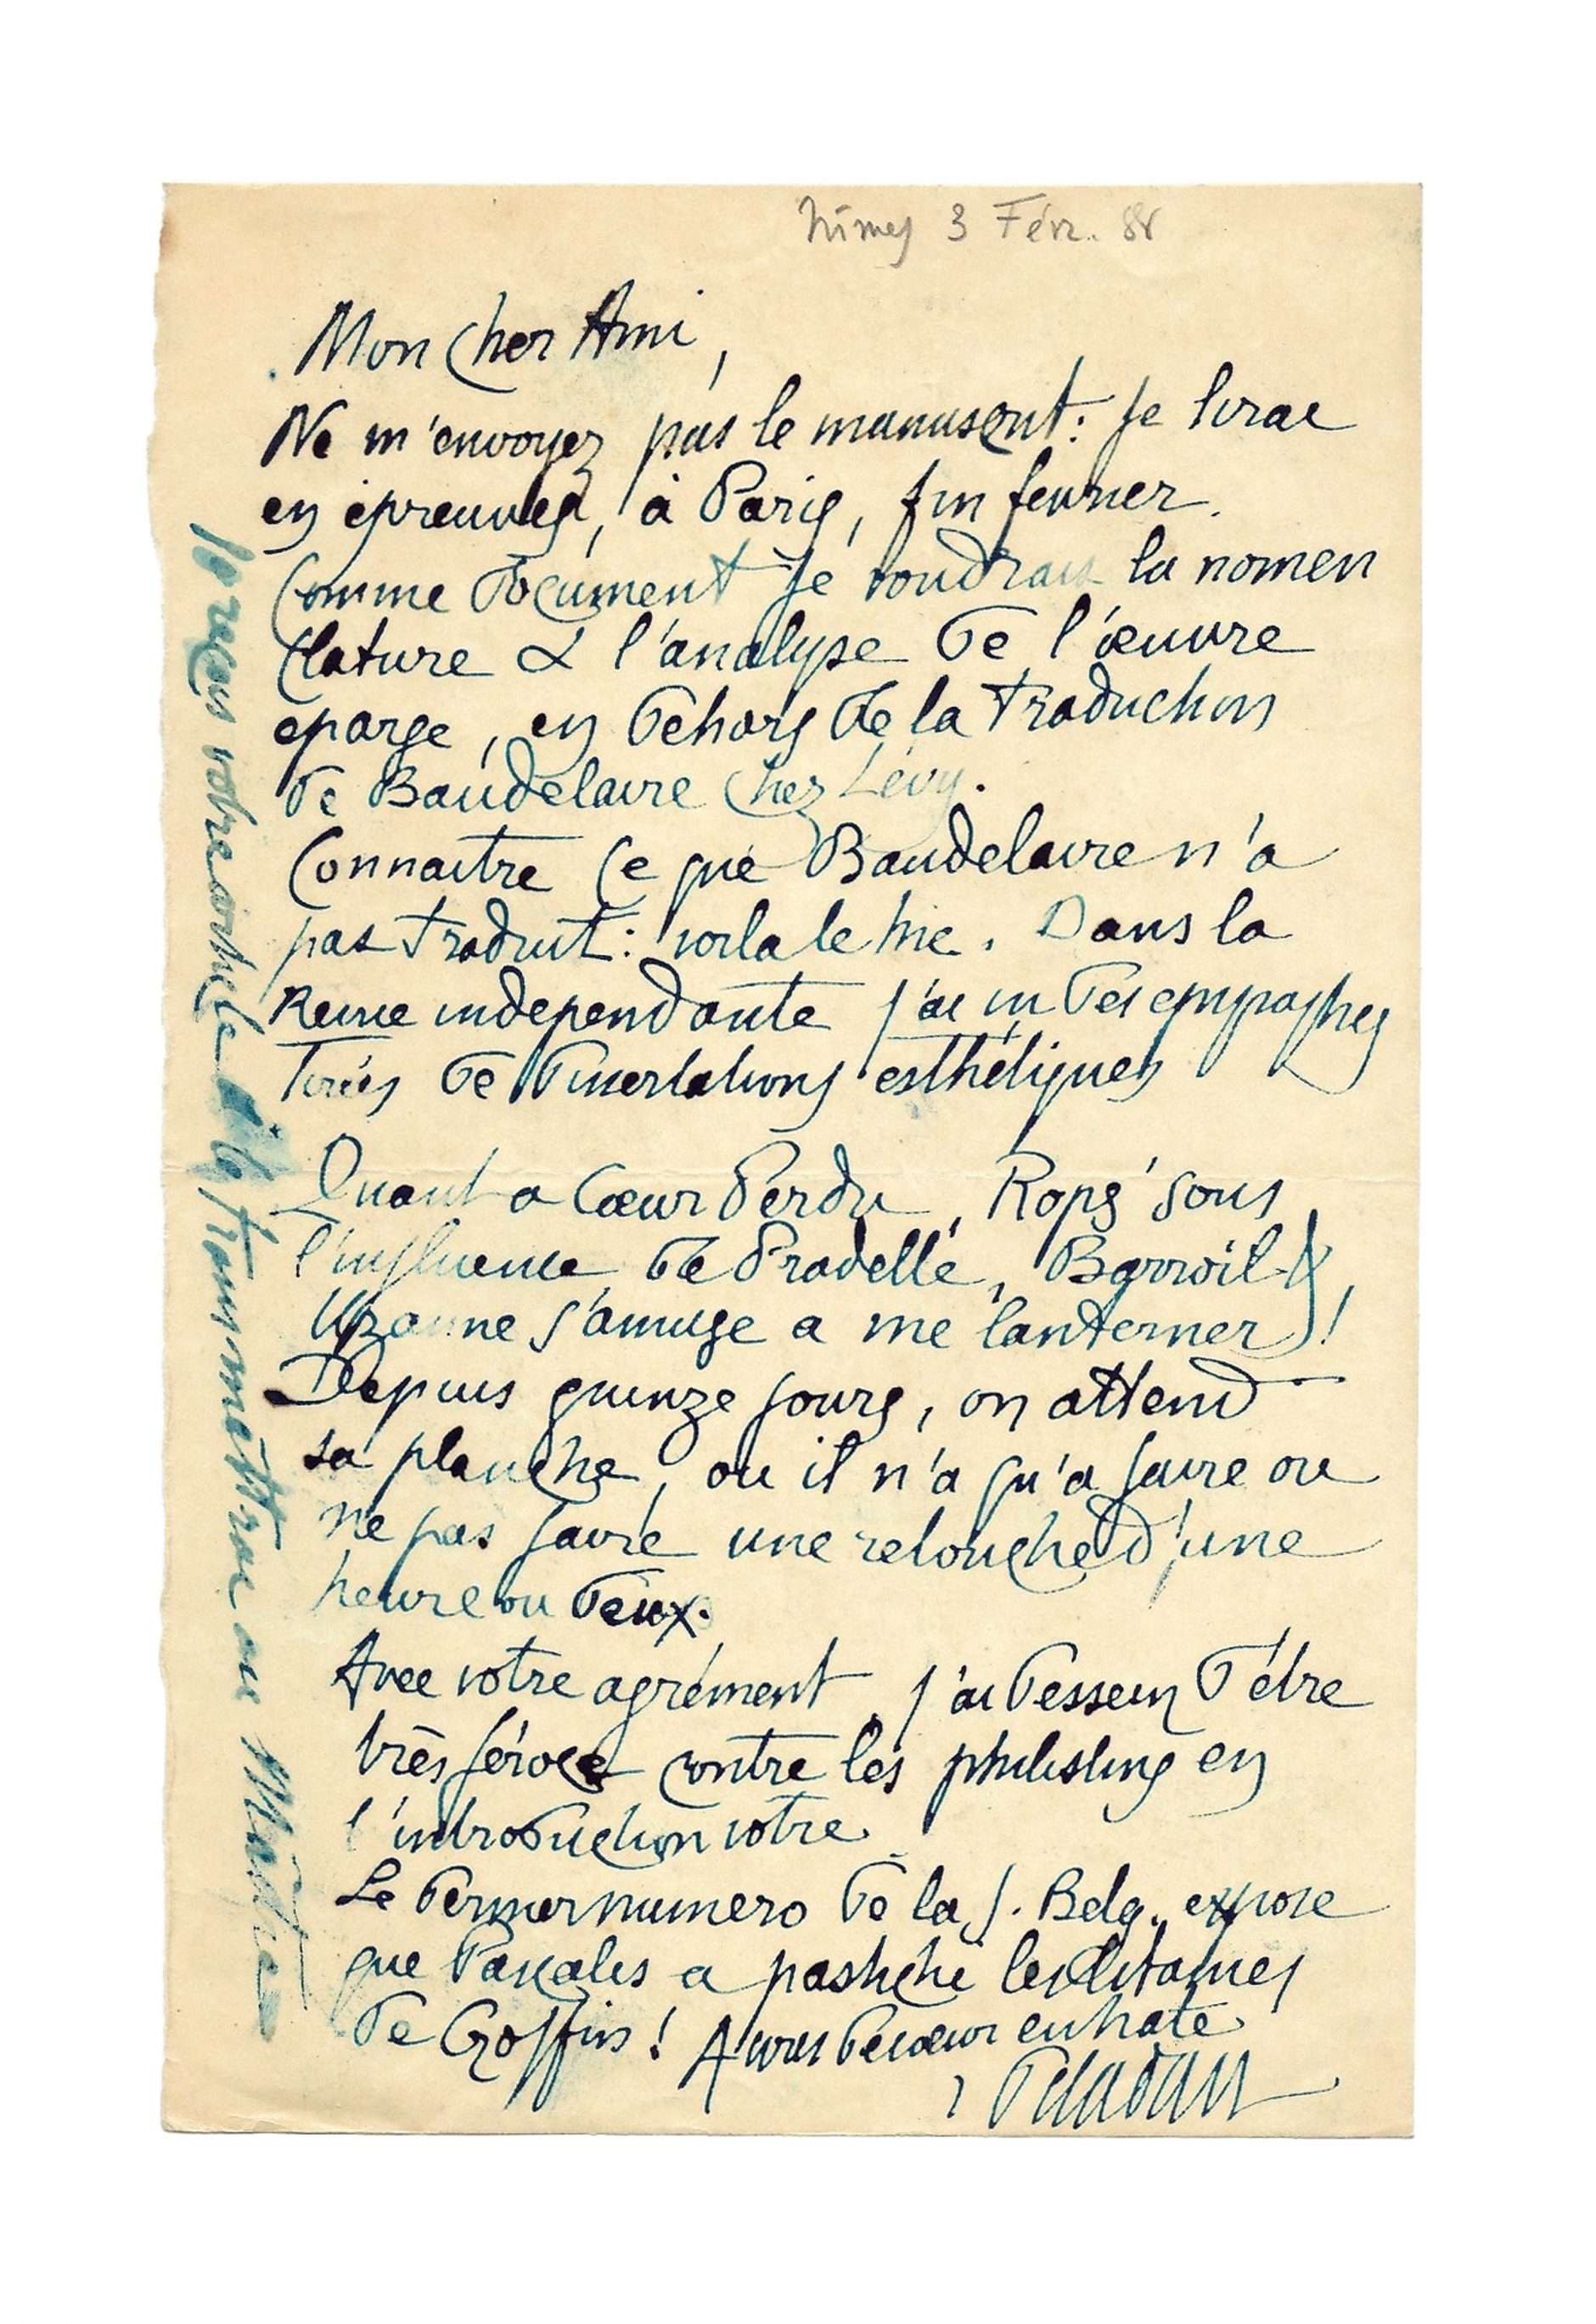 Nîmes 3 Févr. 88
Mon cher Ami,
Ne m'envoyez pas le manuscrit : je lirai
en épreuves, à Paris, fin fevrier.
Comme document je voudrais la nomen
clature & l'analyse de l'œuvre
eparse, en dehors de la traduction
de Baudelaire chez Lévy.
Connaitre ce que Baudelaire n'a
pas traduit : voila le hic. Dans la
Revue independante j'ai vu des
tirées de dissertations esthétiques
Quant a Cœur Perdu, Rops sous
l'influence de Pradelle, &
Uzanne s'amuse a me lanterner !
Depuis quinze jours, on attend
sa planche, ou il n'a qu'a faire ou
ne pas faire une retouche d'une
heure ou deux.
Avec votre agrément, j'ai dessein d'être
très féroce contre les philistins en
l'introduction votre
Le dernier numero de la J. Belg. expose
que Pascalis a pastiché les litanies
de Goffin ! A vous de cœur en hate
Peladan
Je reçois votre article & le transmettrai au